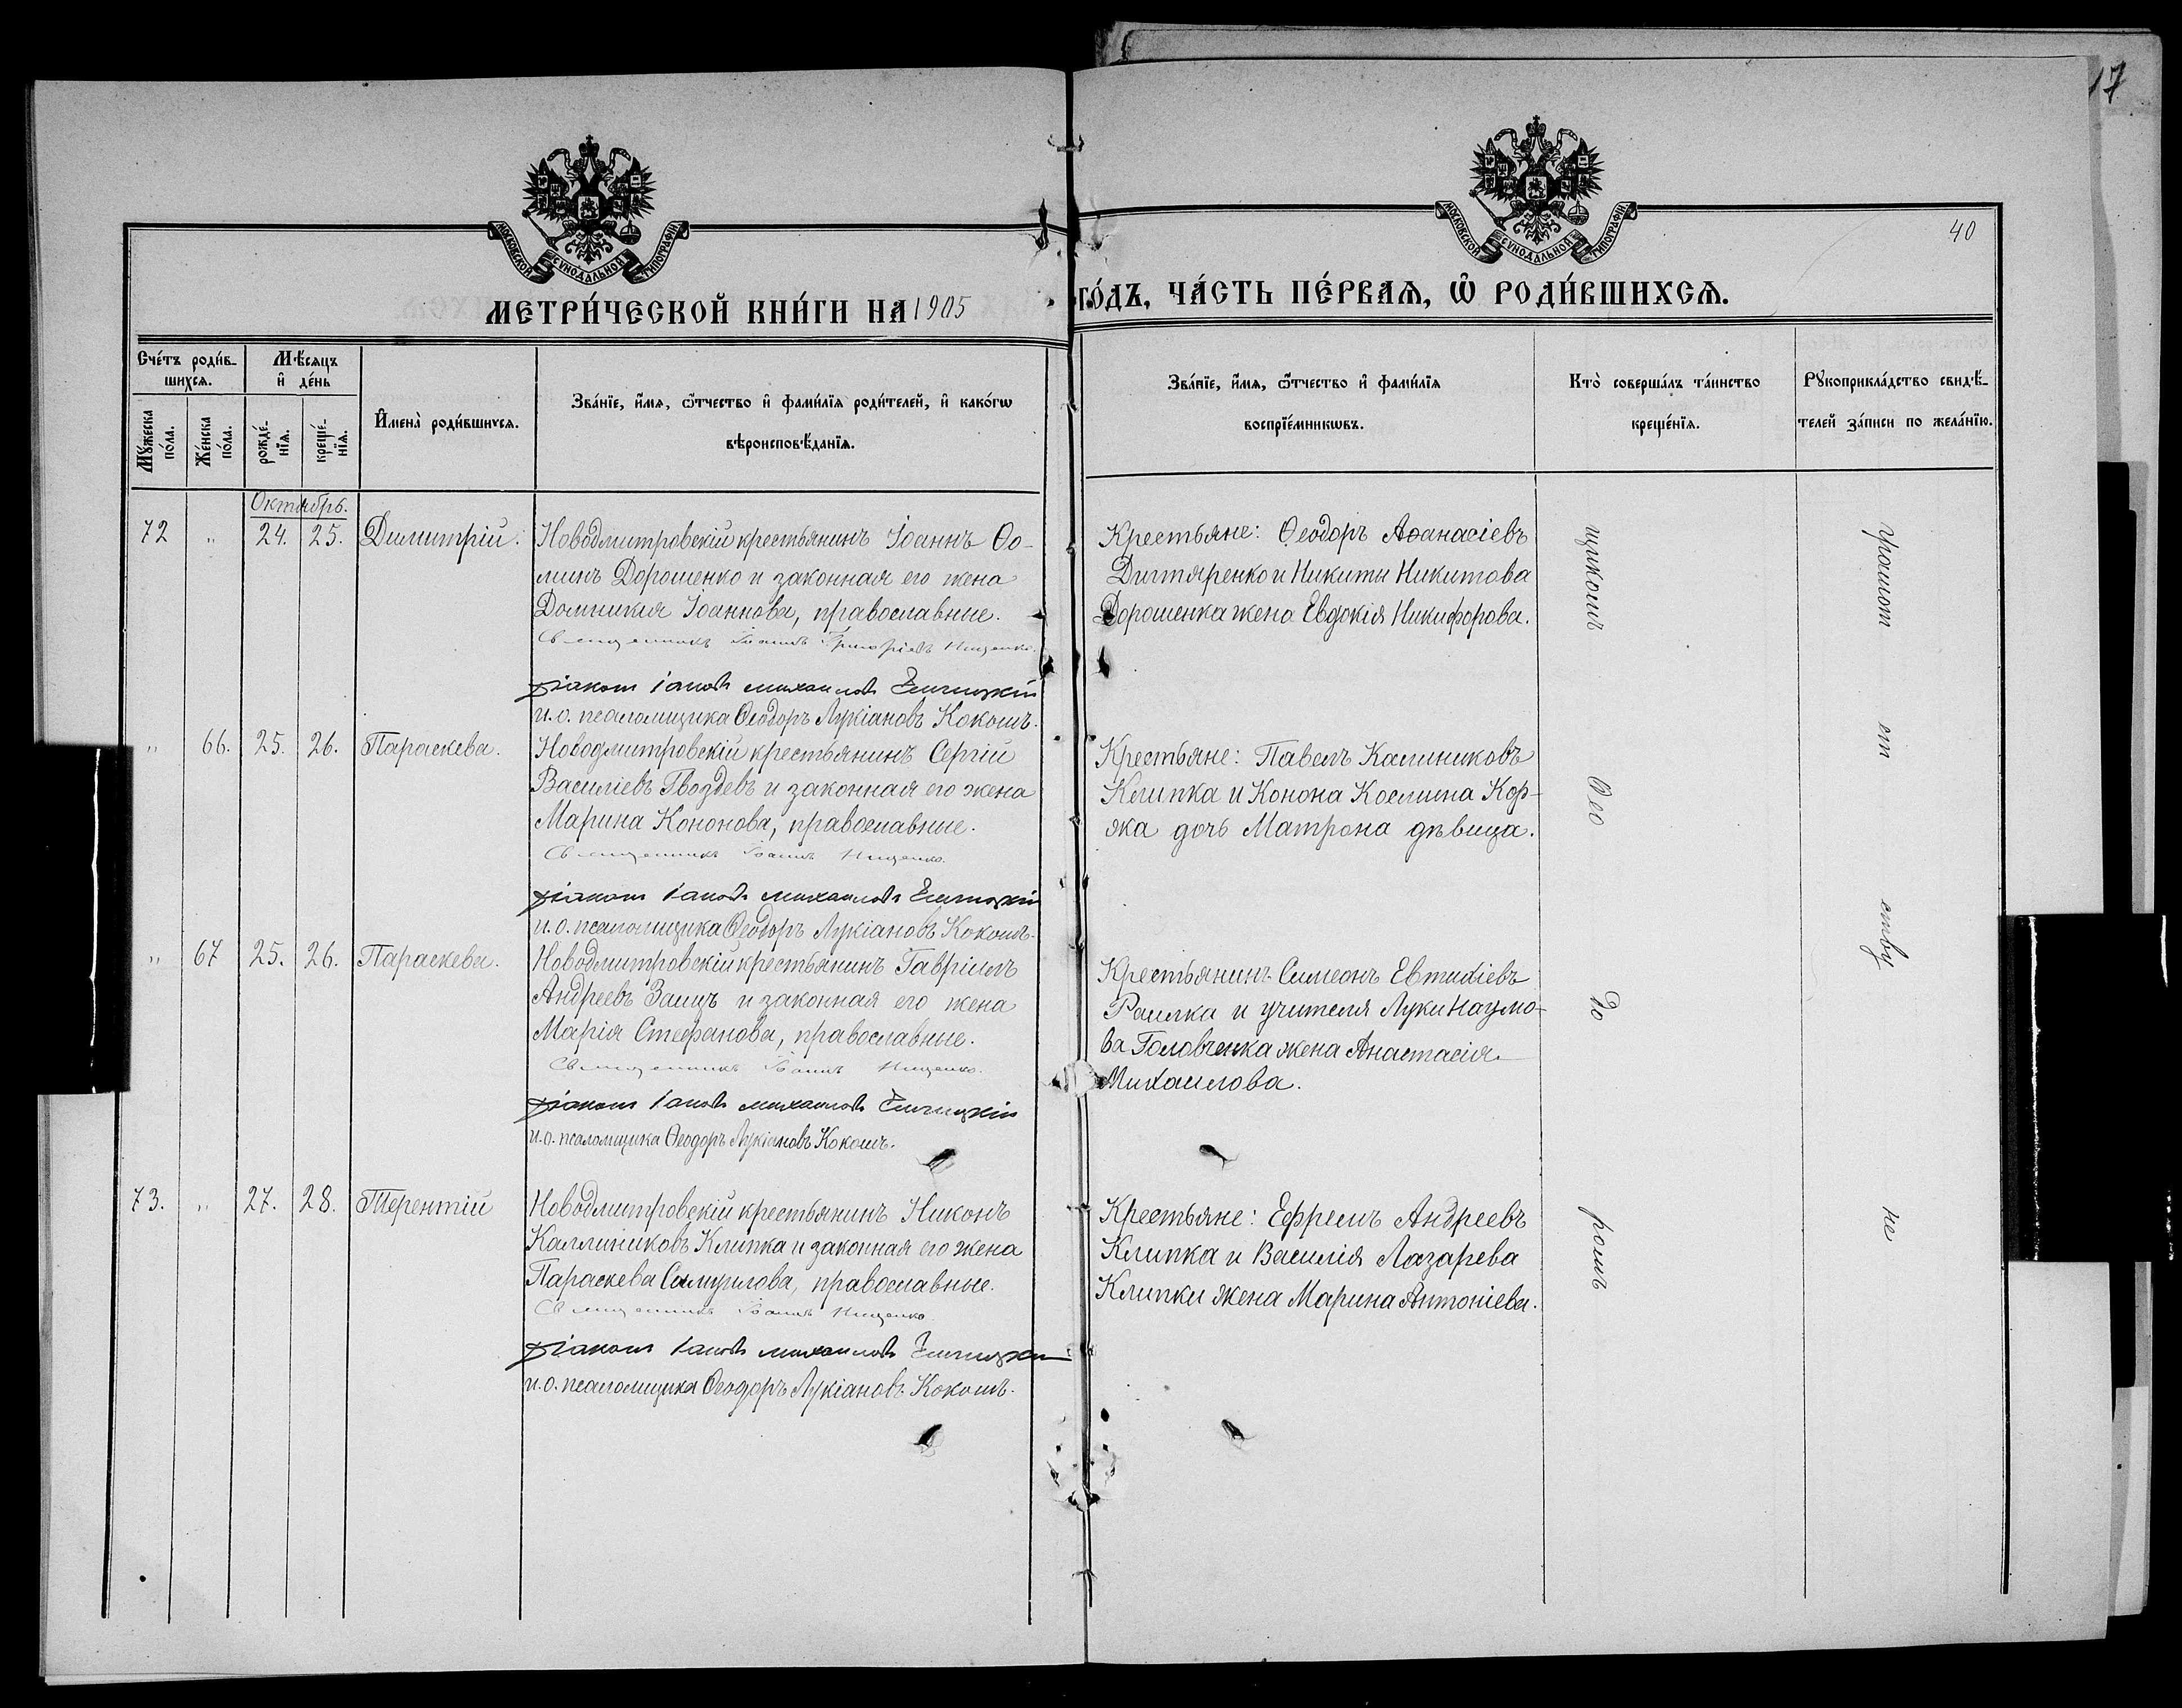 17
40
МОСКОВСКОЙ СУНОДАЛЬНОЙ ТИПОГРАФІИ
МОСКОВСКОЙ СУНОДАЛЬНОЙ ТИПОГРАФІИ
МЕТРИ́ЧЕСКОЙ КНИ́ГИ НА 1905
ГО́ДЪ, ЧА́СТЬ ПЕ́РВАѦ, Ѡ҆ РОДИ́ВШИХСѦ.
Сче́тъ роди́в-
шихсѧ.
Мѣ́сѧцъ
и҆ де́нь
Мꙋ́жеска
по́ла.
Же́нска
по́ла.
рожде́-
нїѧ.
креще́-
нїѧ.
И҆мена̀ роди́вшихсѧ.
Зва́нїе, и҆́мѧ, ѻ҆́тчество и҆ фами́лїѧ роди́телей, и҆ како́гѡ
вѣроисповѣ́данїѧ.
Зва́нїе, и҆́мѧ, ѻ҆́тчество и҆ фами́лїѧ
воспрїе́мникѡвъ.
Кто̀ соверша́лъ та́инство
креще́нїѧ.
Рꙋкоприкла́дство свидѣ́-
телей за́писи по жела́нїю.
Октябрь.
72 " 24. 25. Димитрій. Новодмитровскій крестьянинъ Іоаннъ Ѳо-
минъ Дорошенко и законная его жена
Домникія Іоаннова, православные.
Священникъ Іоаннъ Григоріевъ Нищенко.
Діаконъ Іаковъ Михаиловъ
и.о. псаломщика Ѳеодоръ Лукіановъ Кокошъ.
Крестьяне: Ѳеодоръ Аѳанасіевъ
Дигтяренко и Никиты Никитова
Дорошенка жена Евдокія Никифорова.
" 66. 25. 26. Параскева. Новодмитровскій крестьянинъ Сергій
Василіевъ Гвоздевъ и законная его жена
Марина Кононова, православные.
Священникъ Іоаннъ Нищенко.
Діаконъ Іаковъ Михаиловъ
и.о. псаломщика Ѳеодоръ Лукіановъ Кокошъ.
Крестьяне: Павелъ Калиниковъ
Клипка и Конона Козмина Кор-
яка дочь Матрона дѣвица.
" 67 25. 26. Параскева. Новодмитровскій крестьянинъ Гавріилъ
Андреевъ Заицъ и законная его жена
Марія Стефанова, православные.
Священникъ Іоаннъ Нищенко.
Діаконъ Іаковъ Михаиловъ
и.о. псаломщика Ѳеодоръ Лукіановъ Кокошъ.
Крестьянинъ Симеонъ Евтихіевъ
и учителя Луки Наумо-
ва Головченка жена Анастасія
Михаилова.
73. " 27. 28. Терентій Новодмитровскій крестьянинъ Никонъ
Каллиниковъ Клипка и законная его жена
Параскева Самуилова, православные.
Священникъ Іоаннъ Нищенко
Діаконъ Іаковъ Михаиловъ
и.о. псаломщика Ѳеодоръ Лукіановъ Кокошъ.
Крестьяне: Ефремъ Андреевъ
Клипка и Василія Лазарева
Клипки жена Марина Антоніева.
щикомъ
Ѳео
до
ромъ
грамот
ст
не